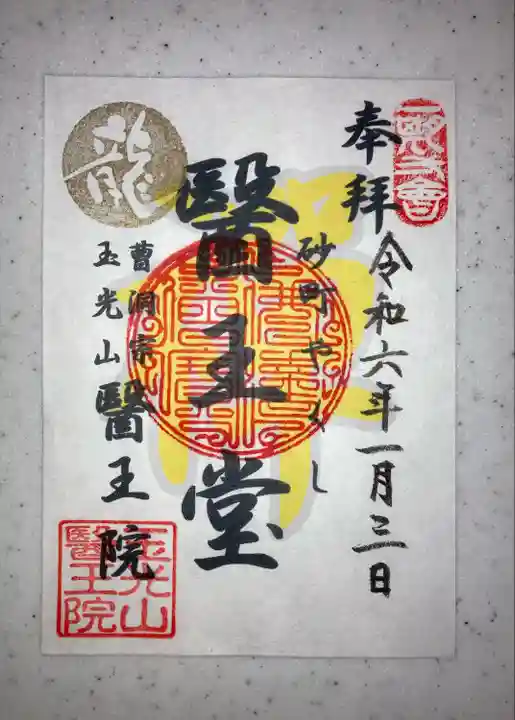 奉拝
令和六年一月三日
砂町やくし
醫王堂
龍
曹洞宗
玉光山醫王院
玉光山
醫王院